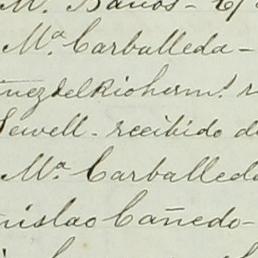 M. Baños -
Mª Carballeda -
ñez del Rio herm.ˢ
Sewell - recibido d
Mª Carballeda
nislao Cañedo -